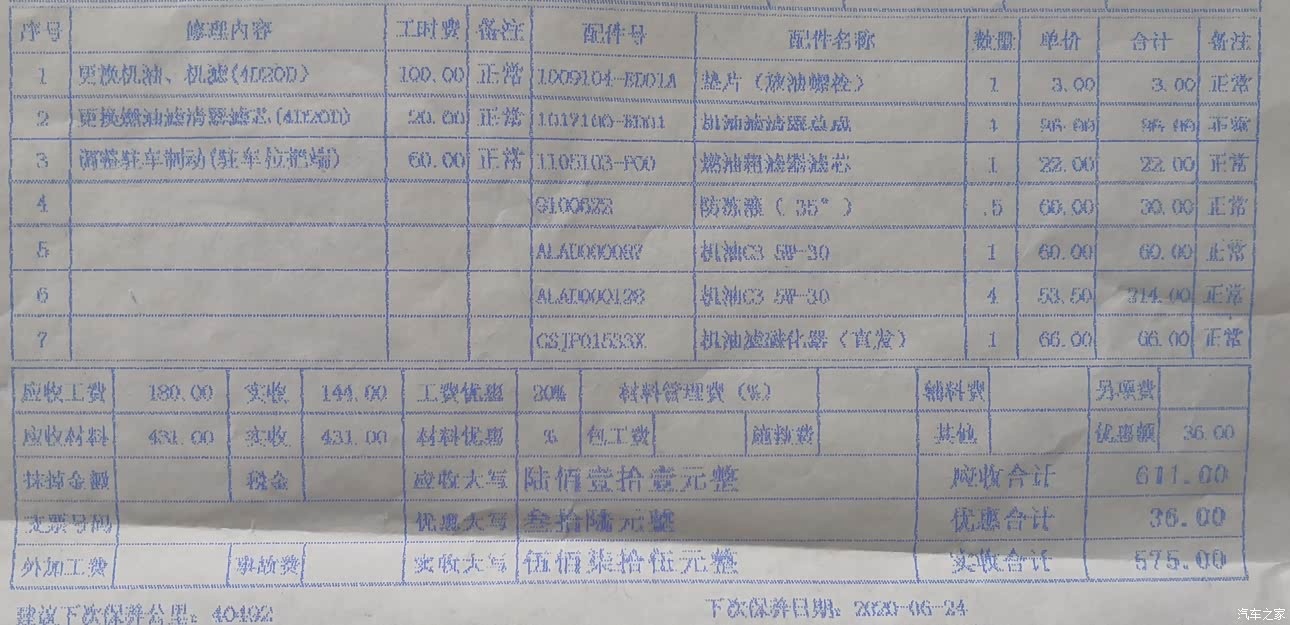 序号 修理内容 工时费 备注 配件号 配件名称 数量 单价 合计 备注
1 更换机油、机滤(4D20D) 100.00 正常 1009104-ED01A 垫片（放油螺栓） 1 3.00 3.00 正常
2 更换燃油滤清器滤芯(4D20D) 20.00 正常 1017100-ED01 机油滤清器总成 1 36.00 36.00 正常
3 调整驻车制动(驻车位把端) 60.00 正常 1105103-P00 燃油粗滤器滤芯 1 22.00 22.00 正常
4 防冻液（35°） .5 60.00 30.00 正常
5 ALAD000087 机油C3 5W-30 1 60.00 60.00 正常
6 ALAD000128 机油C3 5W-30 4 53.50 214.00 正常
7 GSJP01533X 机油滤磁化器（直发） 1 66.00 66.00 正常
应收工费 180.00 实收 144.00 工费优惠 20% 材料管理费（%） 辅料费 另项费
应收材料 431.00 实收 431.00 材料优惠 % 包工费 施救费 其他 优惠额 36.00
抹掉金额 税金 应收大写 陆佰壹拾壹元整 应收合计 611.00
支票号码 优惠大写 叁拾陆元整 优惠合计 36.00
外加工费 事故费 实收大写 伍佰柒拾伍元整 实收合计 575.00
建议下次保养公里：40492 下次保养日期：2020-06-24
汽车之家